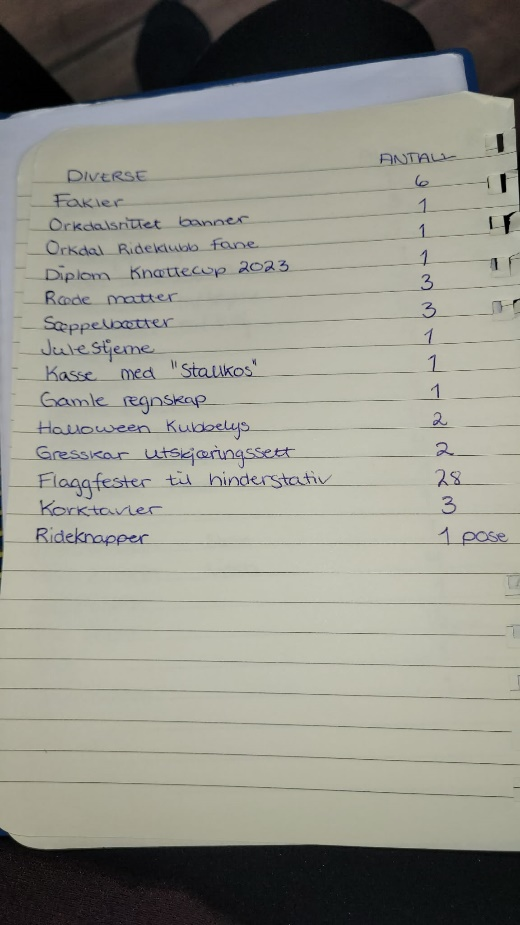 DIVERSE ANTALL
Fakler 6
Orkdalsrittet banner 1
Orkdal Rideklubb fane 1
Diplom Knøttecup 2023 1
Røde matter 3
Søppelbøtter 3
Julestjerne 1
Kasse med "Stallkos" 1
Gamle regnskap 1
Halloween Kubbelys 2
Gresskar utskjæringssett 2
Flaggfester til hinderstativ 28
Korktavler 3
Rideknapper 1 pose